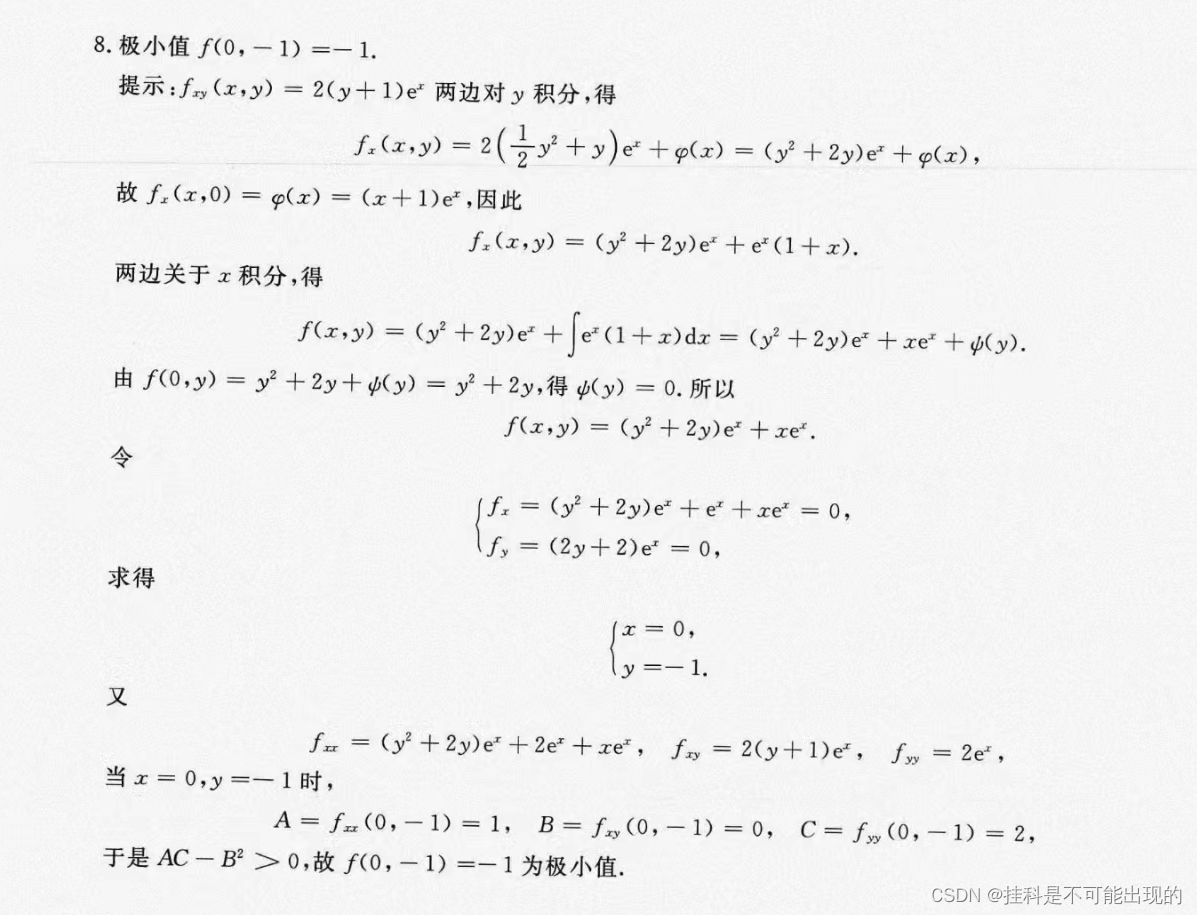 8. 极小值 f(0, −1) = −1.
提示: f_{xy}(x,y) = 2(y+1)e^x 两边对 y 积分,得
f_x(x,y) = 2(\frac{1}{2}y^2 + y)e^x + φ(x) = (y^2 + 2y)e^x + φ(x),
故 f_x(x,0) = φ(x) = (x+1)e^x,因此
f_x(x,y) = (y^2 + 2y)e^x + e^x(1+x).
两边关于 x 积分,得
f(x,y) = (y^2 + 2y)e^x + ∫e^x(1+x)dx = (y^2 + 2y)e^x + xe^x + ψ(y).
由 f(0,y) = y^2 + 2y + ψ(y) = y^2 + 2y,得 ψ(y) = 0. 所以
f(x,y) = (y^2 + 2y)e^x + xe^x.
令
f_x = (y^2 + 2y)e^x + e^x + xe^x = 0,
f_y = (2y+2)e^x = 0,
求得
x = 0,
y = −1.
又
f_{xx} = (y^2 + 2y)e^x + 2e^x + xe^x, f_{xy} = 2(y+1)e^x, f_{yy} = 2e^x,
当 x = 0, y = −1 时,
A = f_{xx}(0, −1) = 1, B = f_{xy}(0, −1) = 0, C = f_{yy}(0, −1) = 2,
于是 AC − B^2 > 0,故 f(0, −1) = −1 为极小值.
CSDN @挂科是不可能出现的